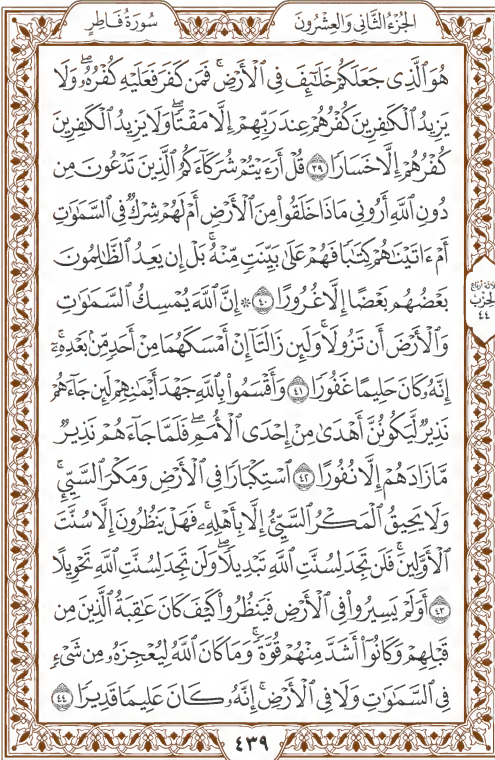 الجزء الثاني والعشرون
سورة فاطر
هُوَ ٱلَّذِي جَعَلَكُمۡ خَلَٰٓئِفَ فِي ٱلۡأَرۡضِۚ فَمَن كَفَرَ فَعَلَيۡهِ كُفۡرُهُۥۖ وَلَا
يَزِيدُ ٱلۡكَٰفِرِينَ كُفۡرُهُمۡ عِندَ رَبِّهِمۡ إِلَّا مَقۡتٗاۖ وَلَا يَزِيدُ ٱلۡكَٰفِرِينَ
كُفۡرُهُمۡ إِلَّا خَسَارٗا ٣٩ قُلۡ أَرَءَيۡتُمۡ شُرَكَآءَكُمُ ٱلَّذِينَ تَدۡعُونَ مِن
دُونِ ٱللَّهِ أَرُونِي مَاذَا خَلَقُواْ مِنَ ٱلۡأَرۡضِ أَمۡ لَهُمۡ شِرۡكٞ فِي ٱلسَّمَٰوَٰتِ
أَمۡ ءَاتَيۡنَٰهُمۡ كِتَٰبٗا فَهُمۡ عَلَىٰ بَيِّنَتٖ مِّنۡهُۚ بَلۡ إِن يَعِدُ ٱلظَّٰلِمُونَ
بَعۡضُهُم بَعۡضًا إِلَّا غُرُورًا ٤٠ ۞ إِنَّ ٱللَّهَ يُمۡسِكُ ٱلسَّمَٰوَٰتِ
وَٱلۡأَرۡضَ أَن تَزُولَاۚ وَلَئِن زَالَتَآ إِنۡ أَمۡسَكَهُمَا مِنۡ أَحَدٖ مِّنۢ بَعۡدِهِۦٓۚ
إِنَّهُۥ كَانَ حَلِيمًا غَفُورٗا ٤١ وَأَقۡسَمُواْ بِٱللَّهِ جَهۡدَ أَيۡمَٰنِهِمۡ لَئِن جَآءَهُمۡ
نَذِيرٞ لَّيَكُونُنَّ أَهۡدَىٰ مِنۡ إِحۡدَى ٱلۡأُمَمِۖ فَلَمَّا جَآءَهُمۡ نَذِيرٞ
مَّا زَادَهُمۡ إِلَّا نُفُورًا ٤٢ ٱسۡتِكۡبَارٗا فِي ٱلۡأَرۡضِ وَمَكۡرَ ٱلسَّيِّيِٕۚ
وَلَا يَحِيقُ ٱلۡمَكۡرُ ٱلسَّيِّئُ إِلَّا بِأَهۡلِهِۦۚ فَهَلۡ يَنظُرُونَ إِلَّا سُنَّتَ
ٱلۡأَوَّلِينَۚ فَلَن تَجِدَ لِسُنَّتِ ٱللَّهِ تَبۡدِيلٗاۖ وَلَن تَجِدَ لِسُنَّتِ ٱللَّهِ تَحۡوِيلًا
٤٣ أَوَلَمۡ يَسِيرُواْ فِي ٱلۡأَرۡضِ فَيَنظُرُواْ كَيۡفَ كَانَ عَٰقِبَةُ ٱلَّذِينَ مِن
قَبۡلِهِمۡ وَكَانُوٓاْ أَشَدَّ مِنۡهُمۡ قُوَّةٗۚ وَمَا كَانَ ٱللَّهُ لِيُعۡجِزَهُۥ مِن شَيۡءٖ
فِي ٱلسَّمَٰوَٰتِ وَلَا فِي ٱلۡأَرۡضِۚ إِنَّهُۥ كَانَ عَلِيمٗا قَدِيرٗا ٤٤
أرباع
الحزب
٤٤
٤٣٩